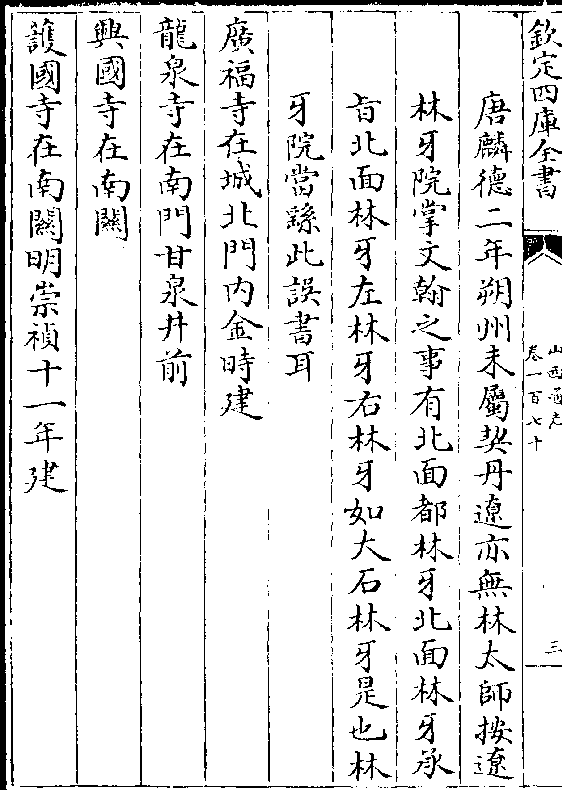 欽定四庫全書
山西通志
卷一百七十
三
唐麟德二年朔州未屬契丹遼亦無林太師按遼
林牙院掌文翰之事有北面都林牙北面林牙承
旨北面林牙左林牙右林牙如大石林牙是也林
牙院當繇此誤書耳
廣福寺在城北門內金時建
龍泉寺在南門甘泉井前
興國寺在南關
護國寺在南關明崇禎十一年建